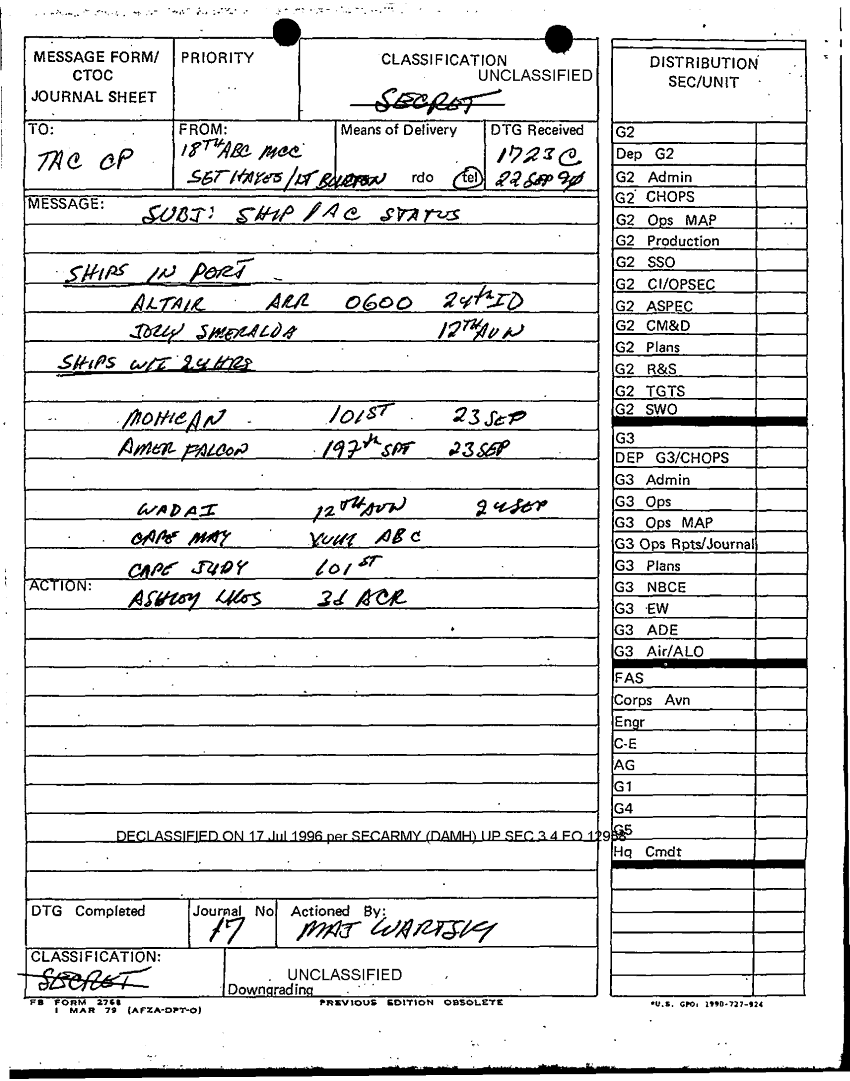 MESSAGE FORM/
CTOC
JOURNAL SHEET
PRIORITY
CLASSIFICATION
UNCLASSIFIED
SECRET
TO:
TAC CP
FROM:
18TH ABC MCC
SGT HAYES/LT BURTON
Means of Delivery
rdo tel
DTG Received
1723C
22 SEP 90
MESSAGE:
SUBJ: SHIP/AC STATUS
SHIPS IN PORT
ALTAIR ARR 0600 24th ID
JOLLY SMERALDA 12TH AVN
SHIPS WTI 24 HRS
MOHICAN 101ST 23 SEP
AMER FALCON 197th SPT 23 SEP
WADAI 12TH AVN 24 SEP
CAPE MAY XVIII ABC
CAPE JUDY 101ST
ACTION:
ASHLEY LKOS 3d ACR
DECLASSIFIED ON 17 Jul 1996 per SECARMY (DAMH) UP SEC 3.4 EO 12958
DTG Completed
Journal No
17
Actioned By:
MAJ WARTSKY
CLASSIFICATION:
SECRET
UNCLASSIFIED
Downgrading
FB FORM 2768
1 MAR 79 (AFZA-DPT-O)
PREVIOUS EDITION OBSOLETE
DISTRIBUTION
SEC/UNIT
G2
Dep G2
G2 Admin
G2 CHOPS
G2 Ops MAP
G2 Production
G2 SSO
G2 CI/OPSEC
G2 ASPEC
G2 CM&D
G2 Plans
G2 R&S
G2 TGTS
G2 SWO
G3
DEP G3/CHOPS
G3 Admin
G3 Ops
G3 Ops MAP
G3 Ops Rpts/Journal
G3 Plans
G3 NBCE
G3 EW
G3 ADE
G3 Air/ALO
FAS
Corps Avn
Engr
C-E
AG
G1
G4
G5
Hq Cmdt
*U.S. GPO: 1990-727-924